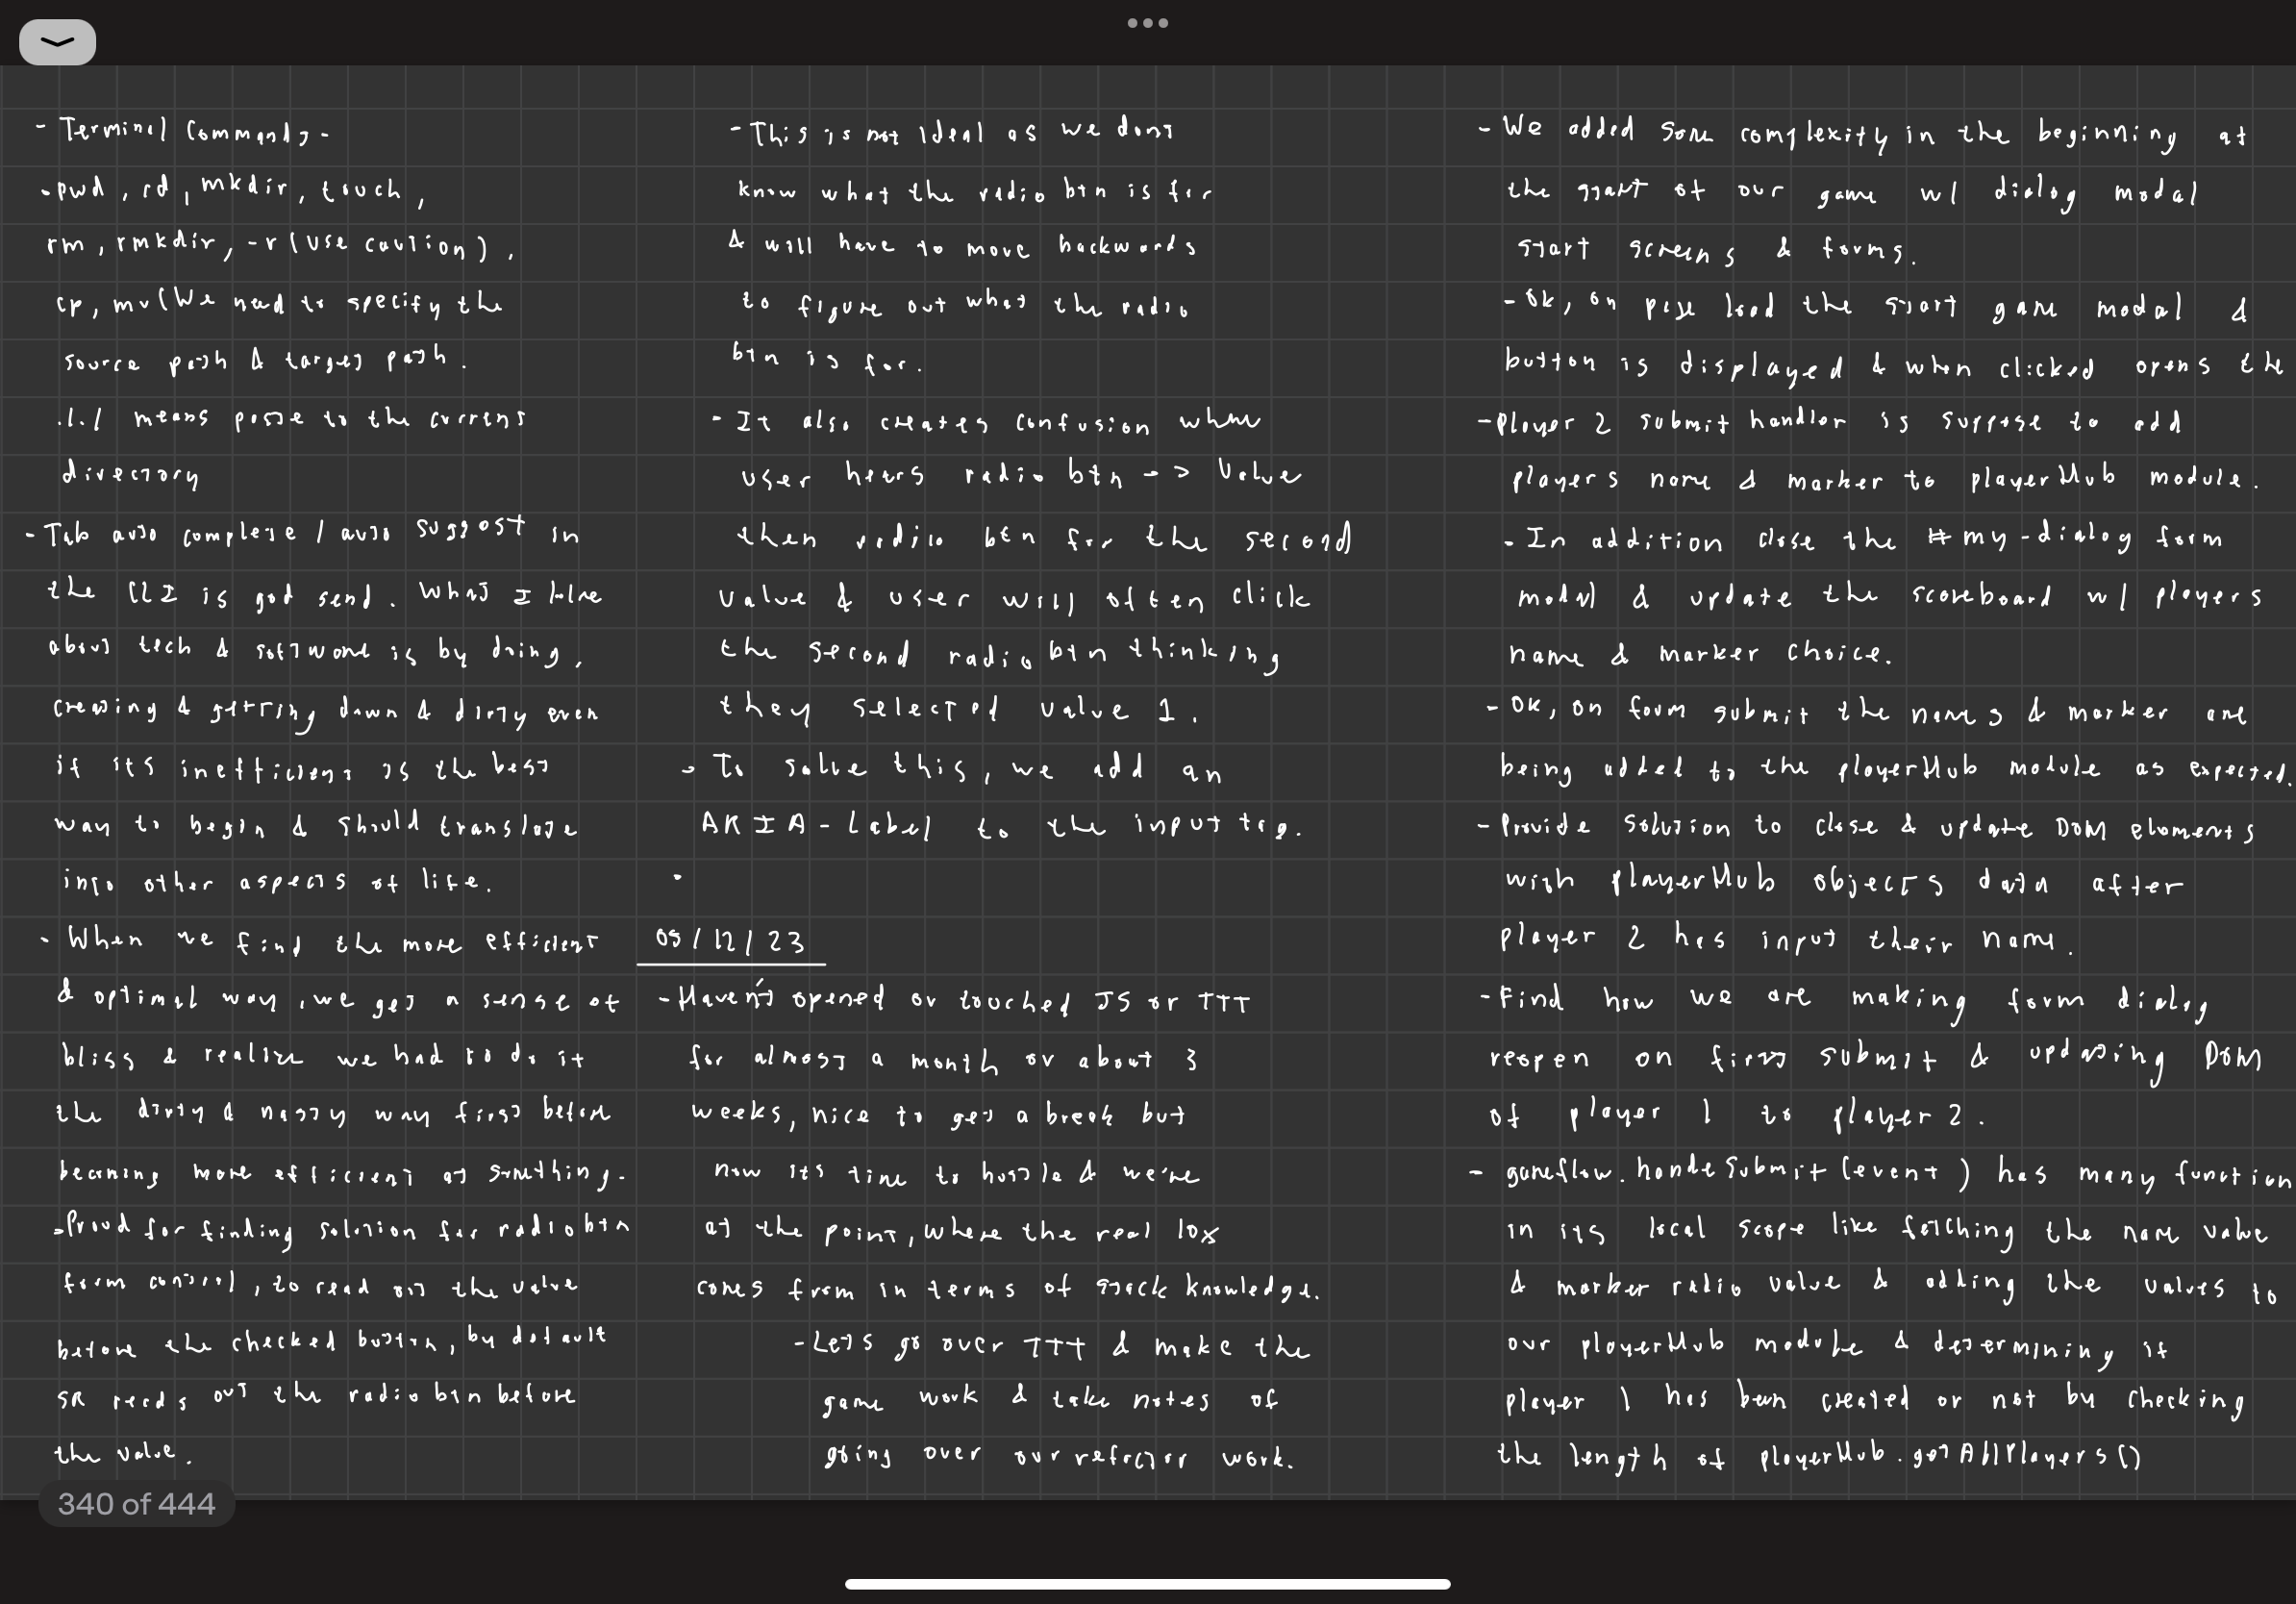 - Terminal Commands -
- pwd, cd, mkdir, touch,
rm, rmkdir, -r (use caution),
cp, mv (We need to specify the
source path & target path.
./. / means paste to the current
directory
- Tab auto complete / auto suggest in
the CLI is god send. What I love
about tech & software is by doing,
creating & getting down & dirty even
if its inefficient is the best
way to begin & should translate
into other aspects of life.
- When we find the more efficient
& optimal way, we get a sense of
bliss & realize we had to do it
the dirty & nasty way first before
becoming more efficient at something.
- Proud for finding solution for radio btn
form control, to read out the value
before the checked button, by default
SR reads out the radio btn before
the value.
- This is not ideal as we dont
know what the radio btn is for
& will have to move backwards
to figure out what the radio
btn is for.
- It also creates confusion when
user hears radio btn --> Value
then radio btn for the second
value & user will often click
the second radio btn thinking
they selected value 1.
- To solve this, we add an
ARIA-Label to the input tag.
05/12/23
- Haven't opened or touched JS or TTT
for almost a month or about 3
weeks, nice to get a break but
now its time to hustle & we're
at the point, where the real 10x
comes from in terms of stack knowledge.
- Lets go over TTT & make the
game work & take notes of
going over our refactor work.
- We added some complexity in the beginning at
the start of our game w/ dialog modal
start screens & forms.
- Ok, on page load the start game modal &
button is displayed & when clicked opens the
- Player 2 submit handler is suppose to add
players name & marker to playerHub module.
- In addition close the #my-dialog form
modal & update the scoreboard w/ players
name & marker choice.
- OK, on form submit the names & marker are
being added to the playerHub module as expected.
- Provide solution to close & update DOM elements
with playerHub objects data after
player 2 has input their name.
- Find how we are making form dialog
reopen on first submit & updating DOM
of player 1 to player 2.
- gameflow.handeSubmit(event) has many function
in its local scope like fetching the name value
& marker radio value & adding the values to
our playerHub module & determining if
player 1 has been created or not by checking
the length of playerHub.getAllPlayers()
340 of 444